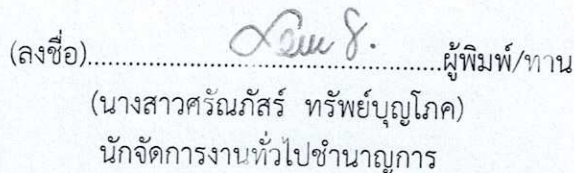 (ลงชื่อ)..................................................ผู้พิมพ์/ทาน
(นางสาวศรัณภัสร์ ทรัพย์บุญโภค)
นักจัดการงานทั่วไปชำนาญการ